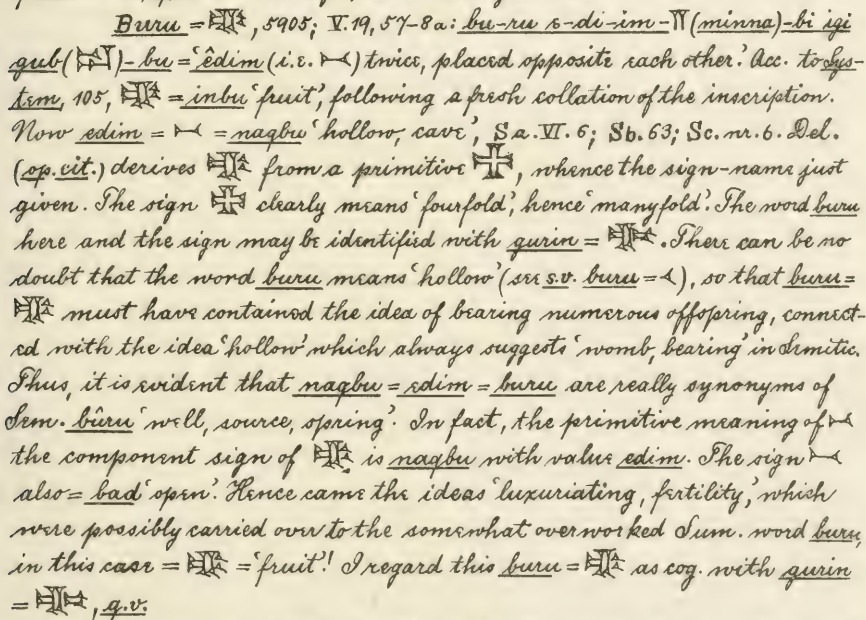 Buru = , 5905; V. 19, 57-8a: bu-ru e-di-im-𒈫(minna)-bi igi
gub()-bu = 'êdim (i.e. 𒁁) twice, placed opposite each other.' Acc. to Sys-
tem, 105, = inbu 'fruit', following a fresh collation of the inscription.
Now edim = 𒁁 = naqbu 'hollow, cave', Sa. VI. 6; Sb. 63; Sc. nr. 6. Del.
(op. cit.) derives from a primitive , whence the sign-name just
given. The sign clearly means 'fourfold', hence 'manyfold'. The word buru
here and the sign may be identified with gurin = . There can be no
doubt that the word buru means 'hollow' (see s.v. buru = 𒌋), so that buru =
must have contained the idea of bearing numerous offspring, connect-
ed with the idea 'hollow' which always suggests 'womb, bearing' in Semitic.
Thus, it is evident that naqbu = edim = buru are really synonyms of
Sem. bûru 'well, source, spring'. In fact, the primitive meaning of 𒁁
the component sign of is naqbu with value edim. The sign 𒁁
also = bad 'open'. Hence came the ideas 'luxuriating, fertility', which
were possibly carried over to the somewhat overworked Sum. word buru,
in this case = = 'fruit'! I regard this buru = as cog. with gurin
= , q.v.